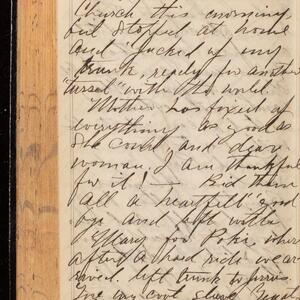 church this morning,
but stopped at home
and "packed up my
trunk, ready for another
"tussel" with the world.
Mother has fixed up
everything as good as
she could, and dear
woman, I am thankful
for it! — Bid them
all a heartfelt good
bye and off with
Mary for Poki, where
after a hard ride we ar-
rived left trunk to